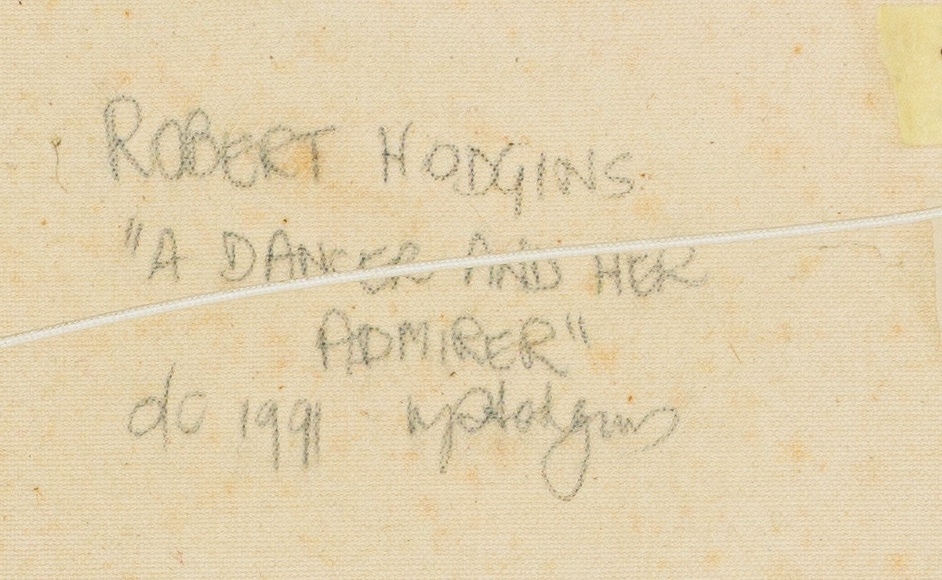 ROBERT HODGINS
"A DANCER AND HER
ADMIRER"
1991 Hodgins